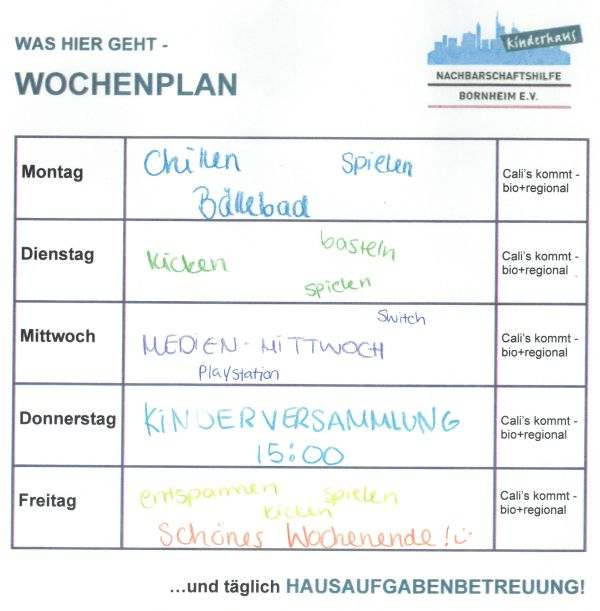 WAS HIER GEHT -
WOCHENPLAN
kinderhaus
NACHBARSCHAFTSHILFE
BORNHEIM E.V.
Montag
Chillen Spielen
Bällebad
Cali's kommt -
bio+regional
Dienstag
basteln
Kicken
spielen
Cali's kommt -
bio+regional
Mittwoch
Switch
MEDIEN-MITTWOCH
Playstation
Cali's kommt -
bio+regional
Donnerstag
KINDERVERSAMMLUNG
15:00
Cali's kommt -
bio+regional
Freitag
entspannen spielen
kicken
Schönes Wochenende!
Cali's kommt -
bio+regional
...und täglich HAUSAUFGABENBETREUUNG!